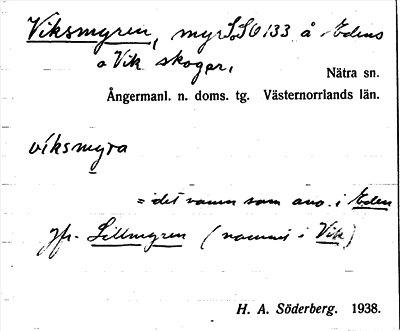 Viksmyren, myr S.S.O 133 å Edens
o Vik skogar,
Nätra sn.
Ångermanl. n. doms. tg. Västernorrlands län.
víksmyra
= det namn som anv. i Eden
Jfr. Lillmyren (namnet i Vik)
H. A. Söderberg. 1938.